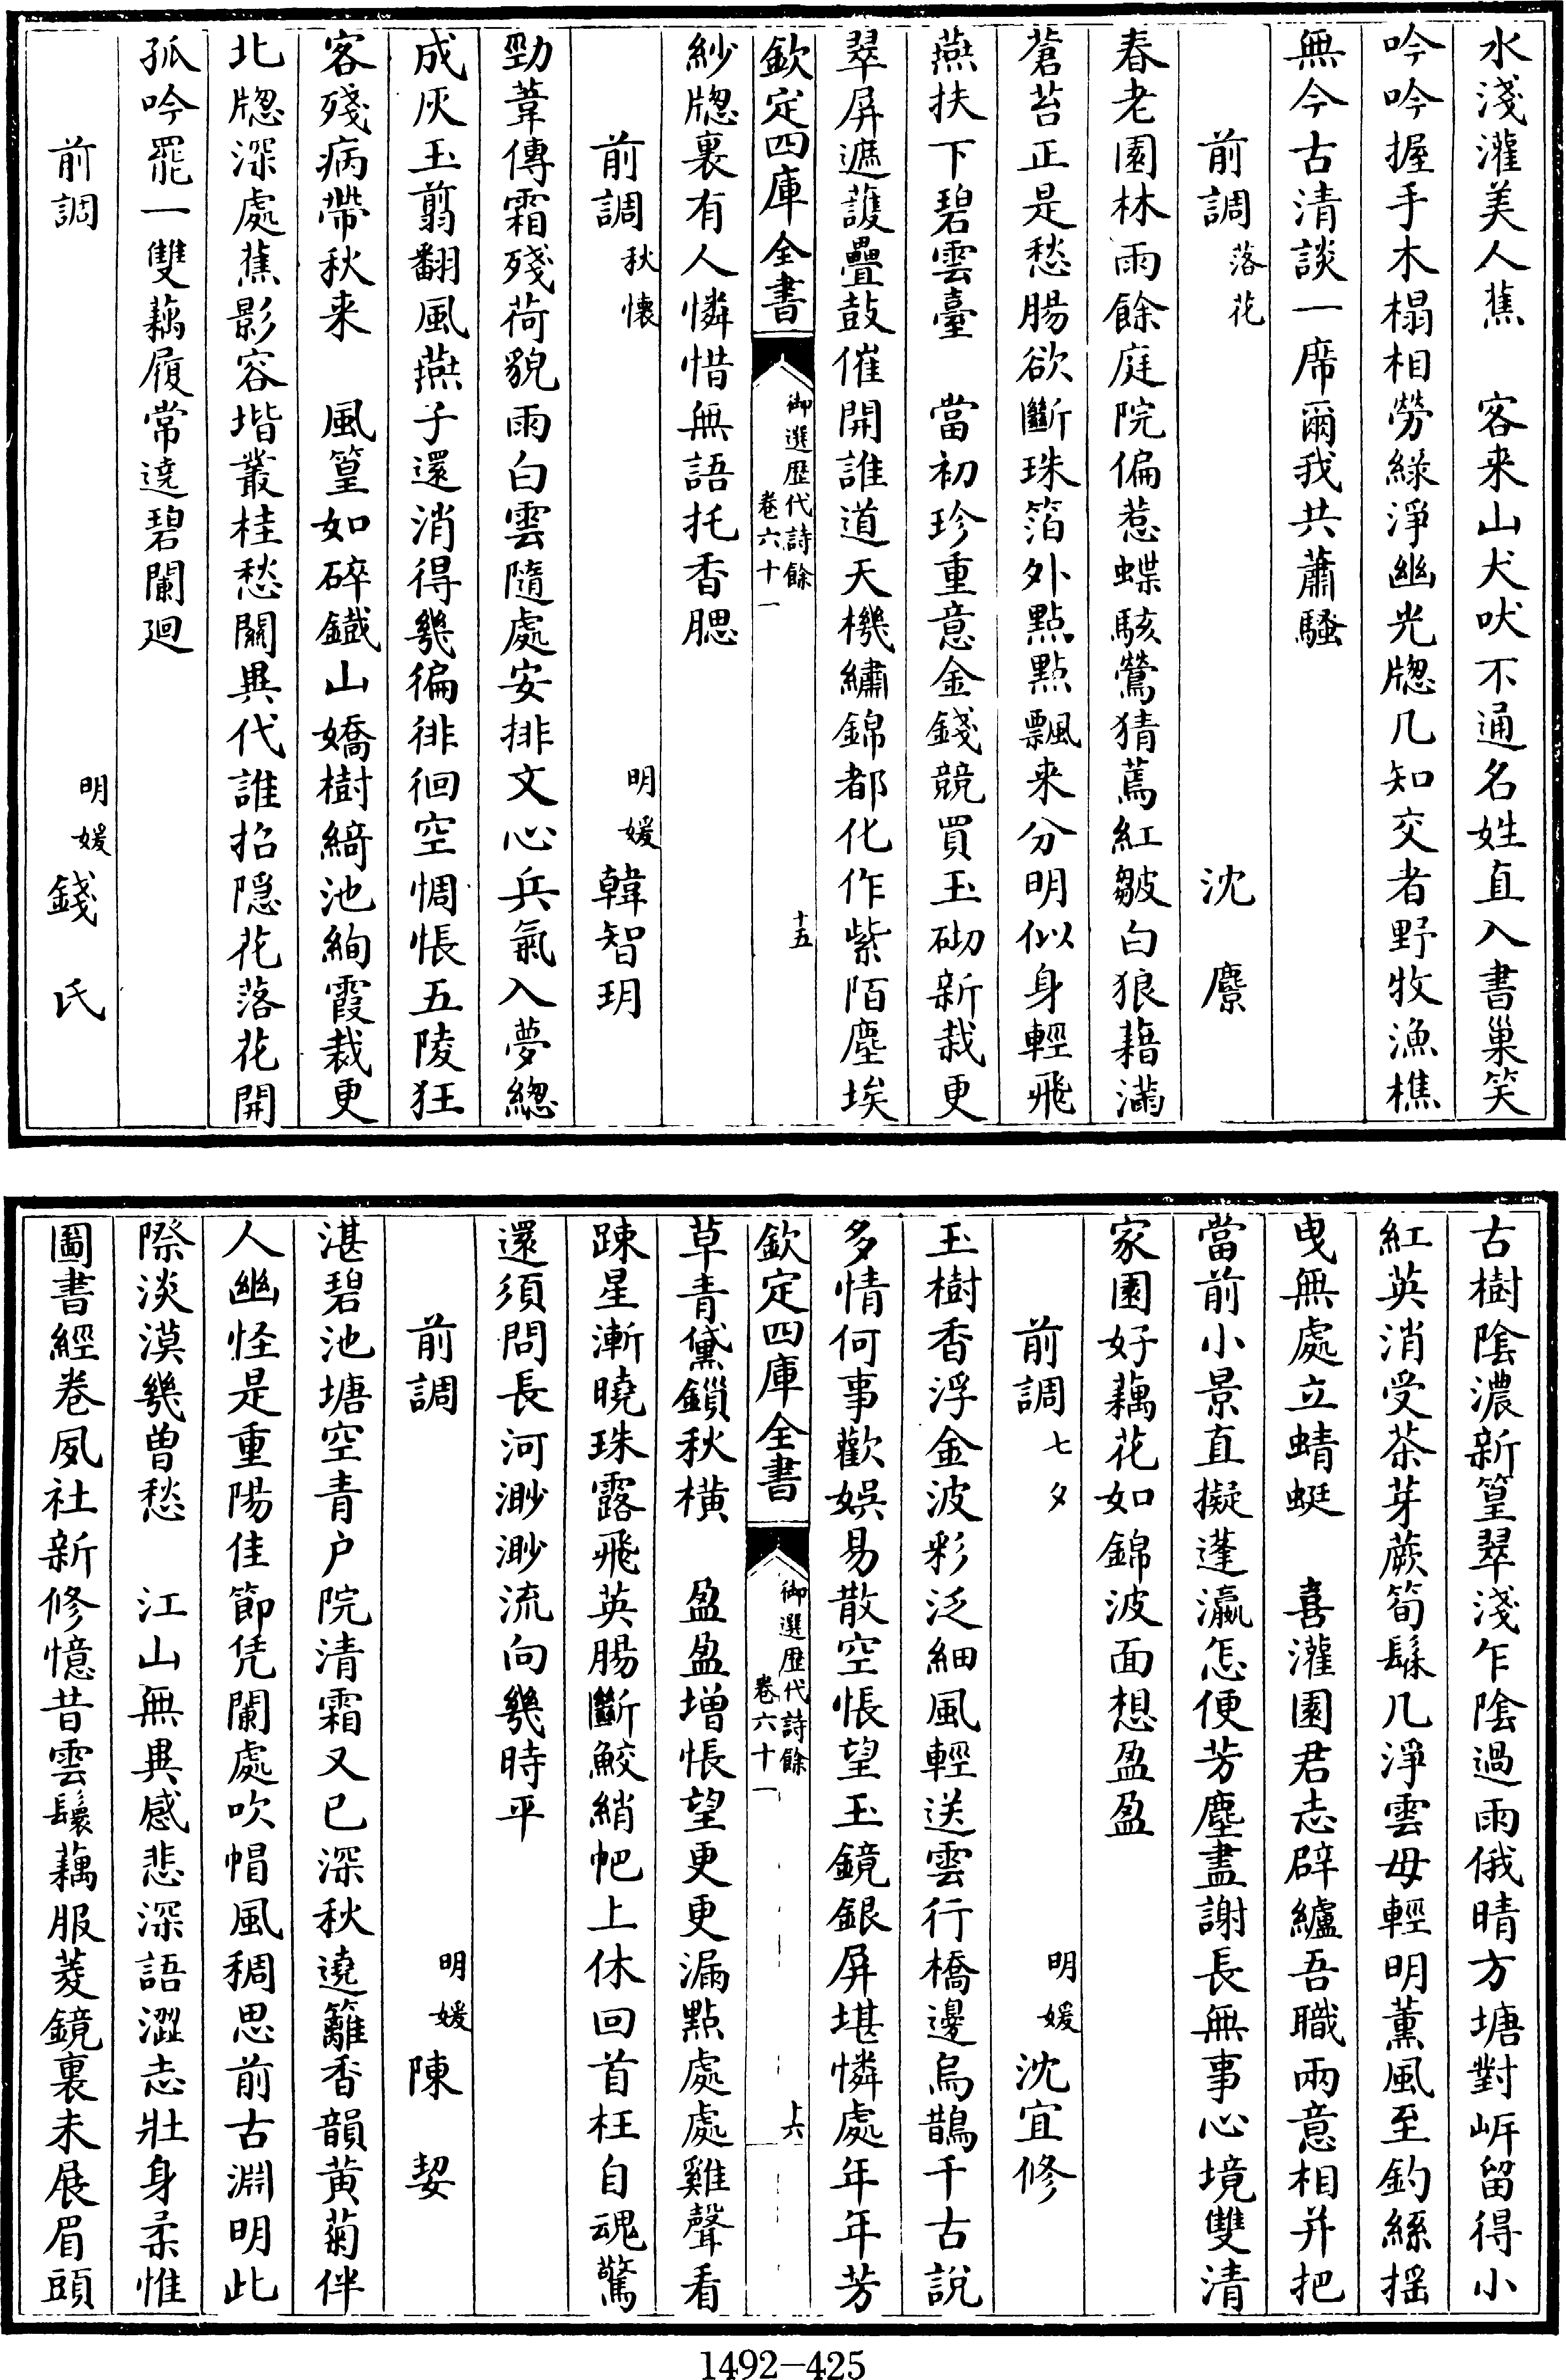 水淺灌美人蕉　客来山犬吠不通名姓直入書巢笑
吟吟握手木榻相勞緑淨幽光牕几知交者野牧漁樵
無今古清談一席爾我共蕭騷
前調落花　沈麖
春老園林雨餘庭院偏惹蝶駭鶯猜蔫紅皺白狼藉滿
蒼苔正是愁腸欲斷珠箔外點點飄来分明似身輕飛
燕扶下碧雲臺　當初珍重意金錢競買玉砌新栽更
翠屏遮護疊鼓催開誰道天機繡錦都化作紫陌塵埃
欽定四庫全書　御選歴代詩餘卷六十一　十五
紗牕裏有人憐惜無語托香腮
前調秋懷　明媛韓智玥
勁葦傳霜殘荷貌雨白雲隨處安排文心兵氣入夢緫
成灰玉翦翻風燕子還消得幾徧徘徊空惆悵五陵狂
客殘病帶秋来　風篁如碎鐵山嬌樹綺池絢霞裁更
北牕深處蕉影容堦叢桂愁關異代誰招隠花落花開
孤吟罷一雙藕履常遶碧闌廻
前調　明媛錢氏
古樹陰濃新篁翠淺乍陰過雨俄晴方塘對㟁留得小
紅英消受茶芽蕨筍髹几淨雲母輕明薰風至釣絲揺
曳無處立蜻蜓　喜灌園君志辟纑吾職兩意相并把
當前小景直擬蓬瀛怎便芳塵盡謝長無事心境雙清
家園好藕花如錦波面想盈盈
前調七夕　明媛沈宜修
玉樹香浮金波彩泛細風輕送雲行橋邊烏鵲千古說
多情何事歡娛易散空悵望玉鏡銀屏堪憐處年年芳
欽定四庫全書　御選歴代詩餘卷六十一　十六
草青黛鎖秋横　盈盈增悵望更更漏點處處雞聲看
踈星漸曉珠露飛英腸斷鮫綃帊上休回首枉自魂驚
還須問長河渺渺流向幾時平
前調　明媛陳契
湛碧池塘空青户院清霜又已深秋遶籬香韻黄菊伴
人幽怪是重陽佳節凭闌處吹帽風稠思前古淵明此
際淡漠幾曽愁　江山無異感悲深語澀志壯身柔惟
圖書經卷夙社新修憶昔雲鬟藕服菱鏡裏未展眉頭
1492—425